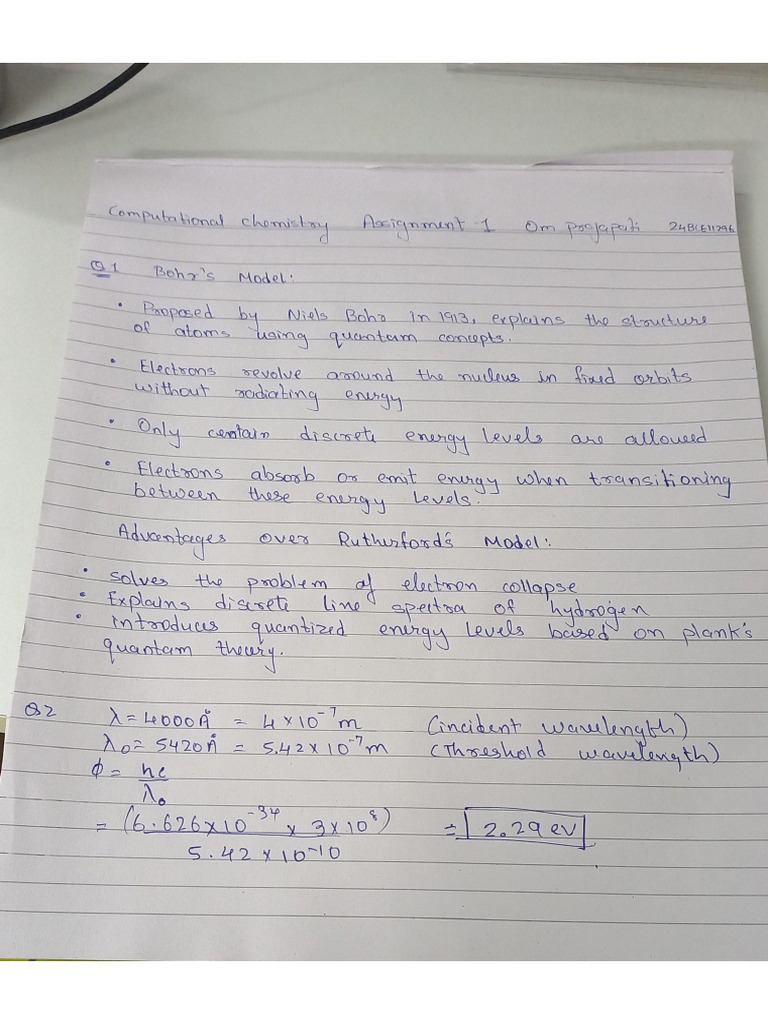 Computational chemistry Assignment 1 Om Prajapati 24BCE11296
Q1 Bohr's Model:
• Proposed by Niels Bohr in 1913, explains the structure
of atoms using quantam concepts.
• Electrons revolve around the nucleus in fixed orbits
without radiating energy
• Only certain discrete energy levels are allowed
• Electrons absorb or emit energy when transitioning
between these energy levels.
Advantages over Rutherford's Model:
• solves the problem of electron collapse
• Explains discrete line spectra of hydrogen
• introduces quantized energy levels based on plank's
quantam theory.
Q2 λ = 4000Å = 4×10⁻⁷m (incident wavelength)
λ₀ = 5420Å = 5.42×10⁻⁷m (Threshold wavelength)
ϕ = hc
λ₀
= (6.626×10⁻³⁴ × 3×10⁸) = 2.29 ev
5.42×10⁻¹⁰